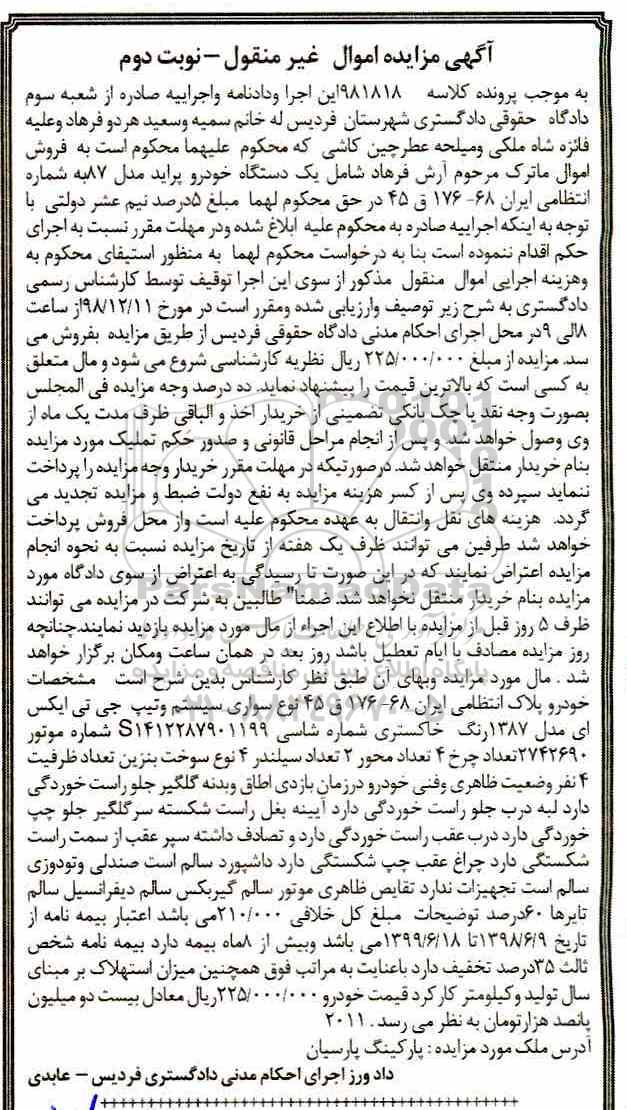 آگهی مزایده اموال غیر منقول – نوبت دوم
به موجب پرونده کلاسه ۹۸۱۸۱۸این اجرا ودادنامه واجراییه صادره از شعبه سوم
دادگاه حقوقی دادگستری شهرستان فردیس له خانم سمیه وسعید هردو فرهاد وعلیه
فائزه شاه ملکی وملیحه عطرچین کاشی که محکوم علیهما محکوم است به فروش
اموال ماترک مرحوم آرش فرهاد شامل یک دستگاه خودرو پراید مدل ۸۷به شماره
انتظامی ایران ۶۸- ۱۷۶ ق ۴۵ در حق محکوم لهما مبلغ ۵درصد نیم عشر دولتی با
توجه به اینکه اجراییه صادره به محکوم علیه ابلاغ شده ودر مهلت مقرر نسبت به اجرای
حکم اقدام ننموده است بنا به درخواست محکوم لهما به منظور استیفای محکوم به
وهزینه اجرایی اموال منقول مذکور از سوی این اجرا توقیف توسط کارشناس رسمی
دادگستری به شرح زیر توصیف وارزیابی شده ومقرر است در مورخ ۹۸/۱۲/۱۱از ساعت
۸الی ۹در محل اجرای احکام مدنی دادگاه حقوقی فردیس از طریق مزایده بفروش می
سد. مزایده از مبلغ ۲۲۵/۰۰۰/۰۰۰ ریال نظریه کارشناسی شروع می شود و مال متعلق
به کسی است که بالاترین قیمت را پیشنهاد نماید. ده درصد وجه مزایده فی المجلس
بصورت وجه نقد یا چک بانکی تضمینی از خریدار اخذ و الباقی ظرف مدت یک ماه از
وی وصول خواهد شد و پس از انجام مراحل قانونی و صدور حکم تملیک مورد مزایده
بنام خریدار منتقل خواهد شد. درصورتیکه در مهلت مقرر خریدار وجه مزایده را پرداخت
ننماید سپرده وی پس از کسر هزینه مزایده به نفع دولت ضبط و مزایده تجدید می
گردد. هزینه های نقل وانتقال به عهده محکوم علیه است واز محل فروش پرداخت
خواهد شد طرفین می توانند ظرف یک هفته از تاریخ مزایده نسبت به نحوه انجام
مزایده اعتراض نمایند که در این صورت تا رسیدگی به اعتراض از سوی دادگاه مورد
مزایده بنام خریدار منتقل نخواهد شد. ضمنا" طالبین به شرکت در مزایده می توانند
ظرف ۵ روز قبل از مزایده با اطلاع این اجراء از مال مورد مزایده بازدید نمایند.چنانچه
روز مزایده مصادف با ایام تعطیل باشد روز بعد در همان ساعت ومکان برگزار خواهد
شد . مال مورد مزایده وبهای آن طبق نظر کارشناس بدین شرح است مشخصات
خودرو پلاک انتظامی ایران ۶۸- ۱۷۶ ق ۴۵ نوع سواری سیستم وتیپ جی تی ایکس
ای مدل ۱۳۸۷رنگ خاکستری شماره شاسی S۱۴۱۲۲۸۷۹۰۱۱۹۹ شماره موتور
۲۷۴۲۶۹۰تعداد چرخ ۴ تعداد محور ۲ تعداد سیلندر ۴ نوع سوخت بنزین تعداد ظرفیت
۴ نفر وضعیت ظاهری وفنی خودرو درزمان بازدی اطاق وبدنه گلگیر جلو راست خوردگی
دارد لبه درب جلو راست خوردگی دارد آیینه بغل راست شکسته سرگلگیر جلو چپ
خوردگی دارد درب عقب راست خوردگی دارد و تصادف داشته سپر عقب از سمت راست
شکستگی دارد چراغ عقب چپ شکستگی دارد داشپورد سالم است صندلی وتودوزی
سالم است تجهیزات ندارد تقایص ظاهری موتور سالم گیربکس سالم دیفرانسیل سالم
تایرها ۶۰درصد توضیحات مبلغ کل خلافی ۲۱۰/۰۰۰می باشد اعتبار بیمه نامه از
تاریخ ۱۳۹۸/۶/۹تا ۱۳۹۹/۶/۱۸می باشد وبیش از ۸ماه بیمه دارد بیمه نامه شخص
ثالث ۳۵درصد تخفیف دارد باعنایت به مراتب فوق همچنین میزان استهلاک بر مبنای
سال تولید وکیلومتر کارکرد قیمت خودرو ۲۲۵/۰۰۰/۰۰۰ریال معادل بیست دو میلیون
پانصد هزارتومان به نظر می رسد . ۲۰۱۱
آدرس ملک مورد مزایده : پارکینگ پارسیان
داد ورز اجرای احکام مدنی دادگستری فردیس – عابدی